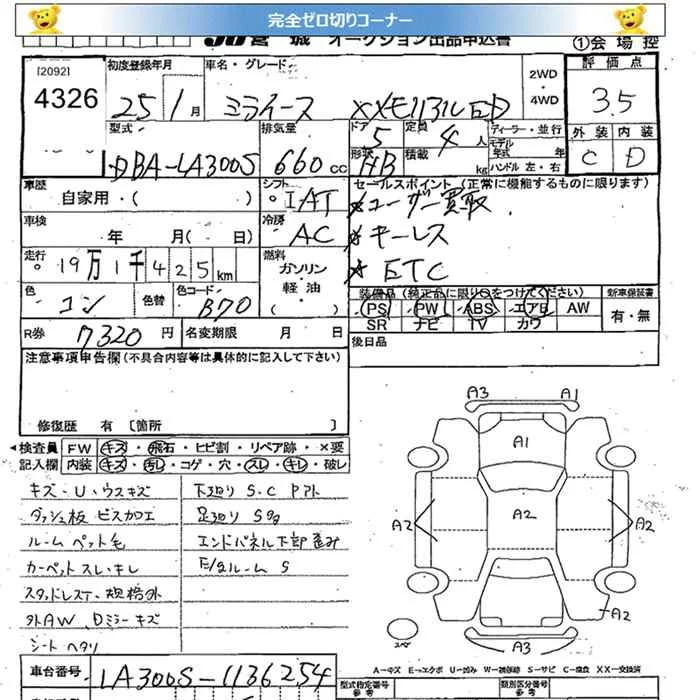 完全ゼロ切りコーナー
JU宮城 オークション出品申込書 ①会場控
[2092]
4326
初度登録年月 車名・グレード 2WD ・ 4WD 評価点
25 1月 ミライース 3.5
型式 排気量 ドア 定員 ディーラー・並行 外装 内装
DBA-LA300S 660cc 5 4人 モデル年式 年 C D
形状 HB 積載 kg ハンドル 左・右
車歴 シフト セールスポイント (正常に機能するものに限ります)
自家用・( ) IAT ★ユーザー買取
車検 冷房 ★キーレス
年 月( 日) AC ★ETC
走行 燃料
19万1千425km ガソリン・軽油( )
色 色替 色コード
コン B70
装備品 (純正品に限り○をつけてください) 新車保証書
PS PW ABS エアB AW 有・無
SR ナビ TV カワ
R券 7320円 名変期限 月 日 後日品
注意事項申告欄(不具合内容等は具体的に記入して下さい)
修復歴 有 〔箇所 〕
検査員 FW キズ・飛石・ヒビ割・リペア跡・×要
記入欄 内装 キズ・汚レ・コゲ・穴・スレ・キレ・破レ
キズ・U・ウスキズ 下廻り S.C Pアト
ダッシュ板 ビス加工 足廻り Sタ
ルーム ペット毛 エンドパネル下部歪み
カーペット スレ・キレ E/gルーム S
スタッドレスT・規格外
外AW Dミラーキズ
シートヘタリ
A3 A1
A1
A2 A2 A2
A2
スペア
A3
A…キズ E…エクボ U…凹み W…補修跡 S…サビ C…腐食 XX…交換済
車台番号 LA300S-1136254 型式指定番号 類別区分番号
参考 参考